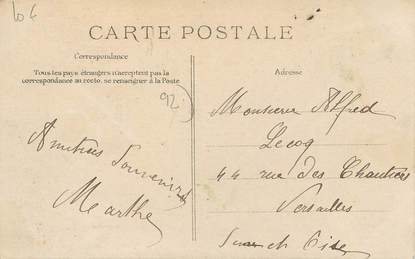 10 €
CARTE POSTALE
Correspondance
Tous les pays étrangers n'acceptent pas la
correspondance au recto, se renseigner à la Poste
Adresse
92
Amitiés Souvenirs
Marthe
Monsieur Alfred
Lecoq
44 rue des Chantiers
Versailles
Seine et Oise